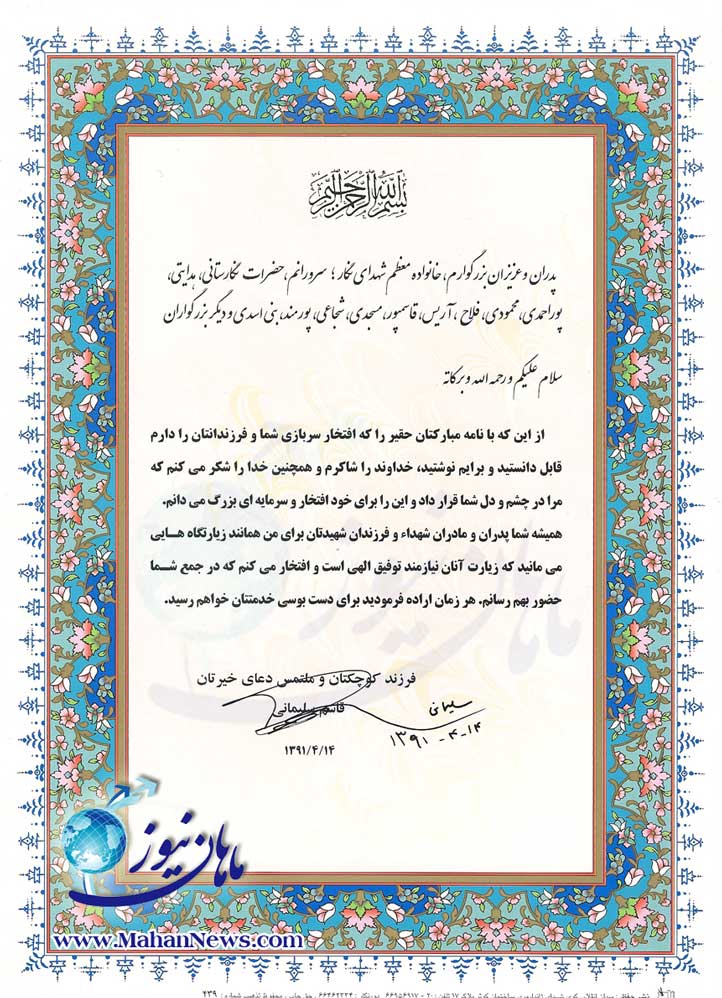 بسم الله الرحمن الرحیم
پدران و عزیزان بزرگوارم، خانواده معظم شهدای نگار؛ سرورانم، حضرات نگارستانی، هدایتی،
پوراحمدی، محمودی، فلاح، آریس، قاسمپور، مسجدی، شجاعی، پورمند، بنی اسدی و دیگر بزرگواران
سلام علیکم و رحمه الله و برکاته
از این که با نامه مبارکتان حقیر را که افتخار سربازی شما و فرزندانتان را دارم
قابل دانستید و برایم نوشتید، خداوند را شاکرم و همچنین خدا را شکر می کنم که
مرا در چشم و دل شما قرار داد و این را برای خود افتخار و سرمایه ای بزرگ می دانم.
همیشه شما پدران و مادران شهداء و فرزندان شهیدتان برای من همانند زیارتگاه هایی
می مانید که زیارت آنان نیازمند توفیق الهی است و افتخار می کنم که در جمع شما
حضور بهم رسانم. هر زمان اراده فرمودید برای دست بوسی خدمتتان خواهم رسید.
فرزند کوچکتان و ملتمس دعای خیرتان
قاسم سلیمانی
سلیمانی
۱۳۹۱-۴-۱۴
۱۳۹۱/۴/۱۴
ماهان نیوز
ماهان نیوز
www.MahanNews.com